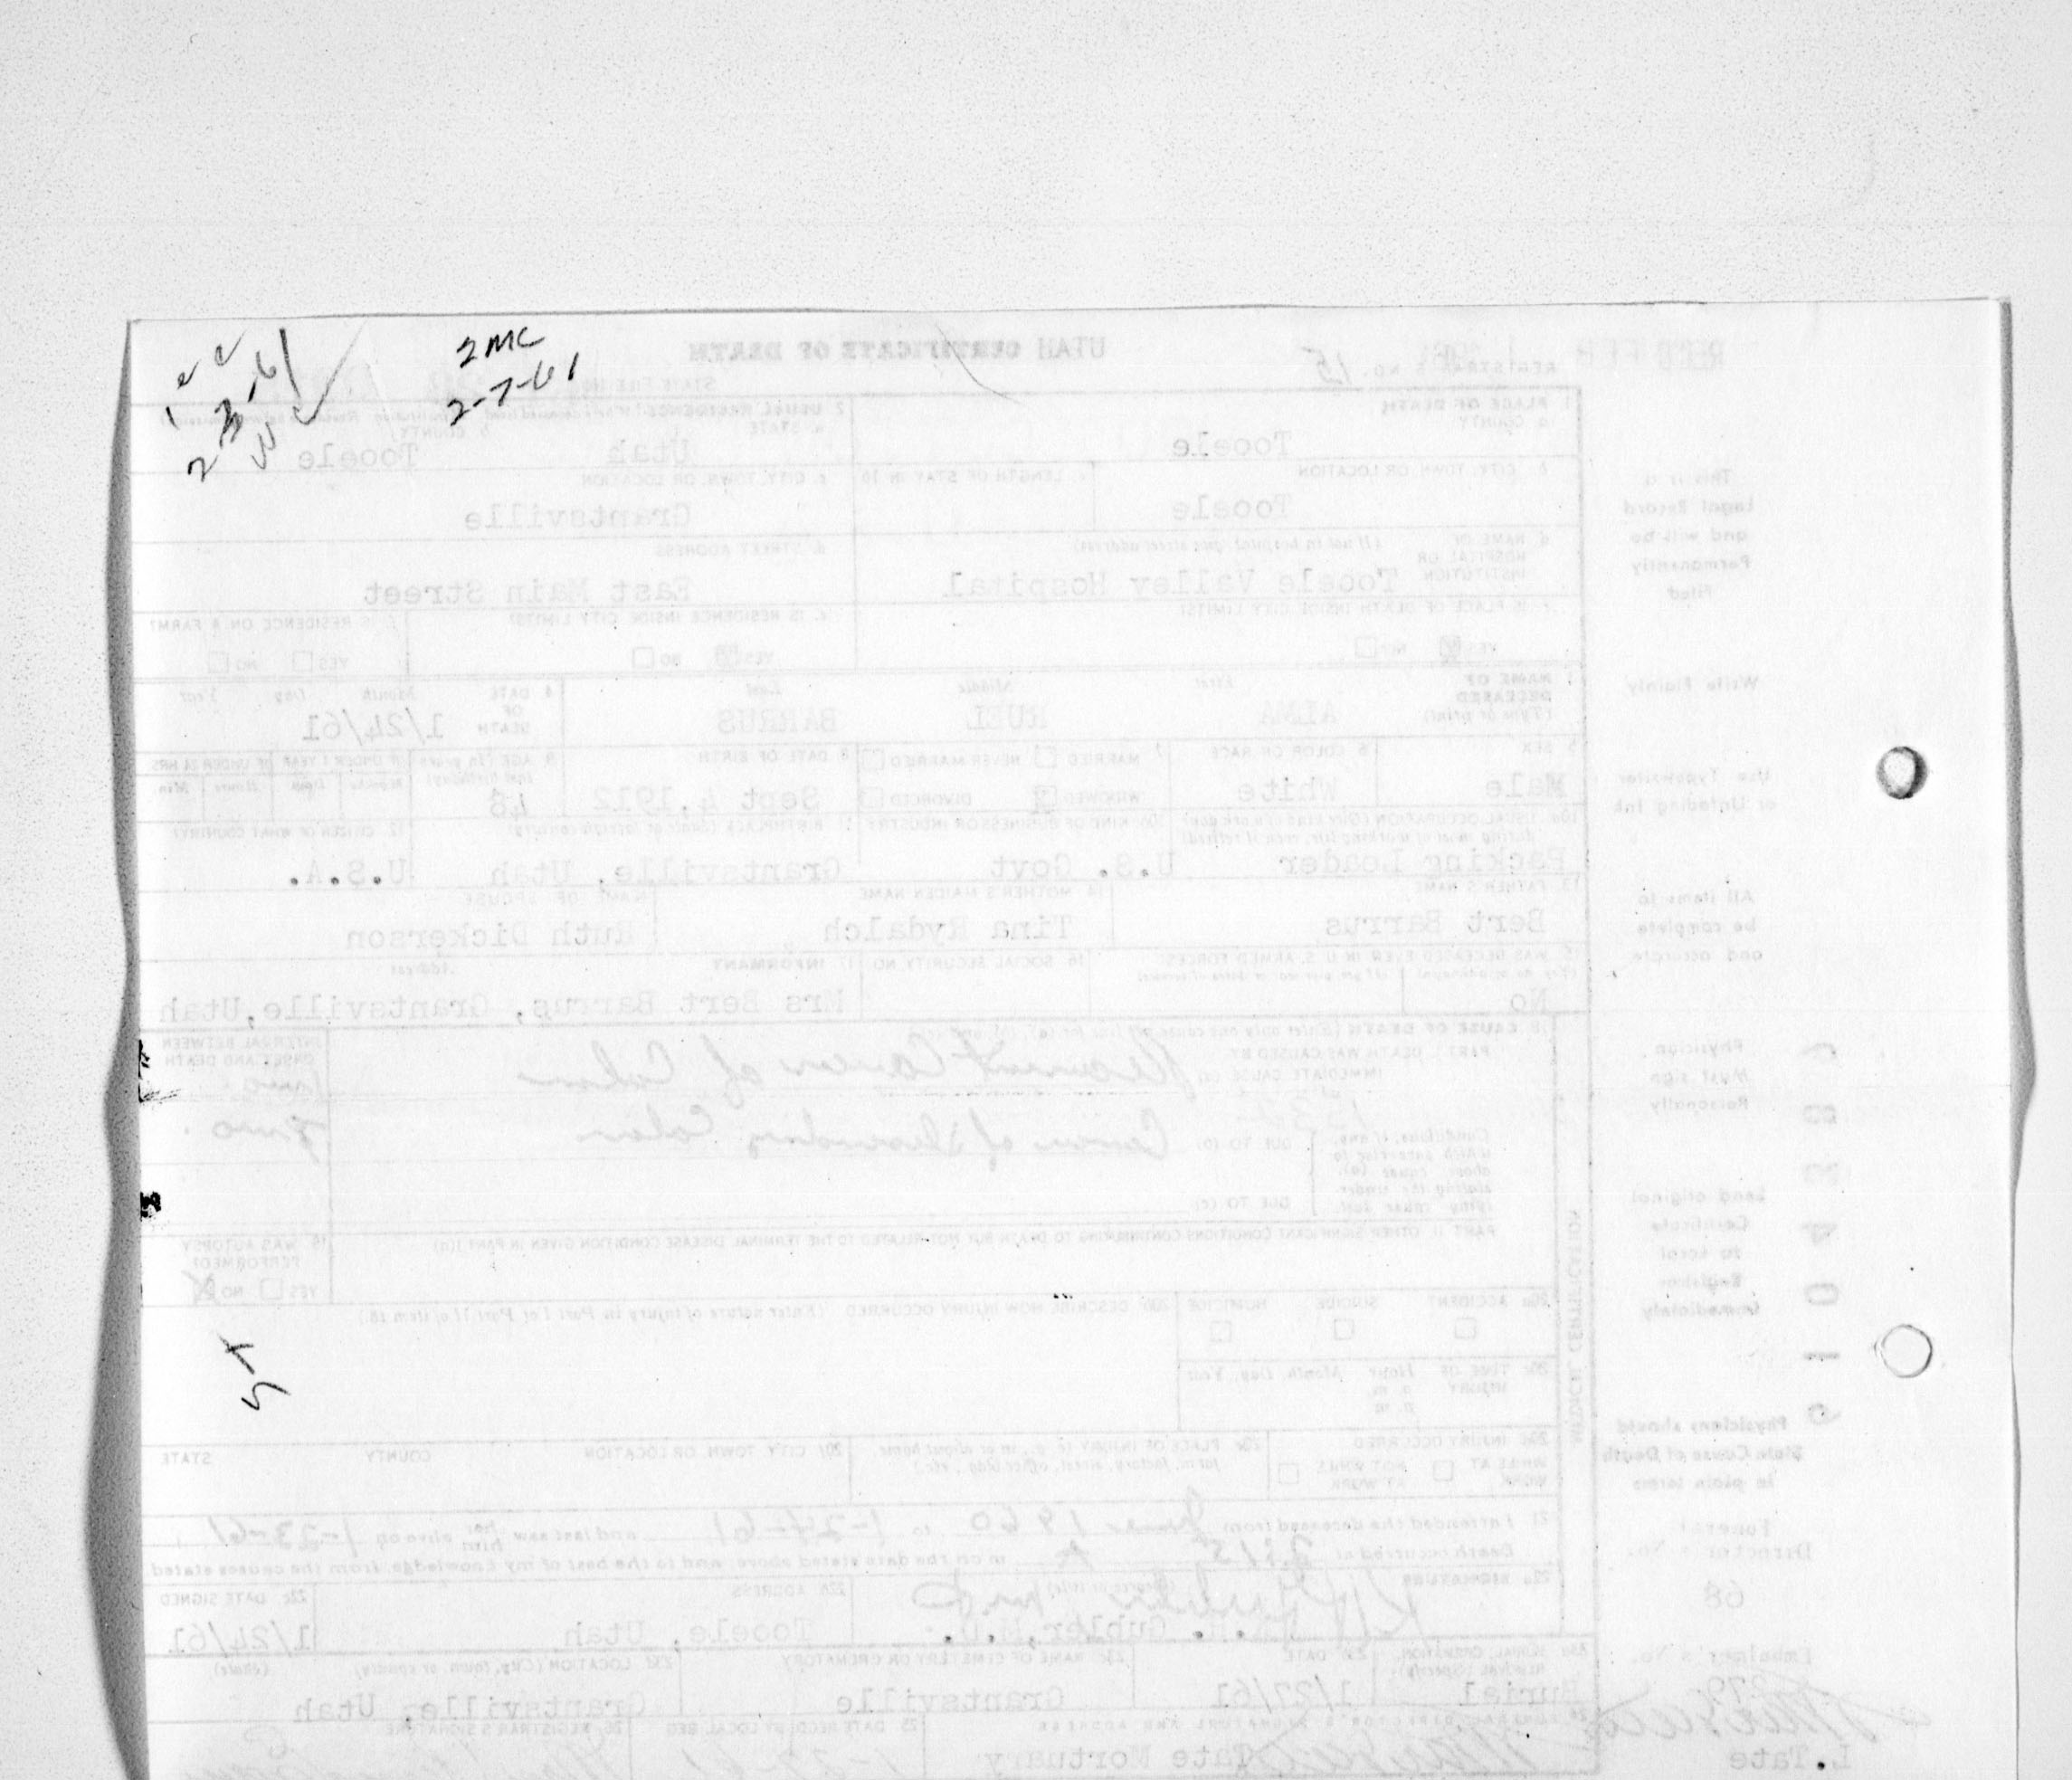 2MC
2-7-61
REC'D FEB
REGISTRAR'S NO. 15
UTAH CERTIFICATE OF DEATH
STATE FILE NO.
1. PLACE OF DEATH
a. COUNTY
Tooele
2. USUAL RESIDENCE
a. STATE
Utah
b. COUNTY
Tooele
b. CITY, TOWN, OR LOCATION
Tooele
LENGTH OF STAY IN 1b
c. CITY, TOWN, OR LOCATION
Grantsville
d. NAME OF HOSPITAL OR INSTITUTION (If not in hospital, give street address)
Tooele Valley Hospital
d. STREET ADDRESS
East Main Street
IS PLACE OF DEATH INSIDE CITY LIMITS?
YES NO
e. IS RESIDENCE INSIDE CITY LIMITS?
YES NO
f. IS RESIDENCE ON A FARM?
YES NO
NAME OF DECEASED (Type or print)
First Middle Last
ALMA RUEL BARRUS
4. DATE OF DEATH Month Day Year
1/24/61
5. SEX
Male
6. COLOR OR RACE
White
7. MARRIED NEVER MARRIED
WIDOWED DIVORCED
8. DATE OF BIRTH
Sept 4,1912
9. AGE (In years last birthday)
48
IF UNDER 1 YEAR IF UNDER 24 HRS
Months Days Hours Min
10a. USUAL OCCUPATION (Give kind of work done during most of working life, even if retired)
Packing Leader
10b. KIND OF BUSINESS OR INDUSTRY
U.S. Govt
11. BIRTHPLACE (State or foreign country)
Grantsville, Utah
12. CITIZEN OF WHAT COUNTRY?
U.S.A.
13. FATHER'S NAME
Bert Barrus
14. MOTHER'S MAIDEN NAME
Tina Rydalch
NAME OF SPOUSE
Ruth Dickerson
15. WAS DECEASED EVER IN U. S. ARMED FORCES?
No
16. SOCIAL SECURITY NO.
17. INFORMANT Address
Mrs Bert Barrus, Grantsville,Utah
18. CAUSE OF DEATH (Enter only one cause per line for (a), (b), and (c))
PART I. DEATH WAS CAUSED BY:
IMMEDIATE CAUSE (a) Recurrent Cancer of Colon
INTERVAL BETWEEN ONSET AND DEATH
Conditions, if any, which gave rise to above cause (a), stating the underlying cause last.
DUE TO (b) Cancer of Descending Colon
DUE TO (c)
PART II. OTHER SIGNIFICANT CONDITIONS CONTRIBUTING TO DEATH BUT NOT RELATED TO THE TERMINAL DISEASE CONDITION GIVEN IN PART I(a)
19. WAS AUTOPSY PERFORMED?
YES NO
20a. ACCIDENT SUICIDE HOMICIDE
20b. DESCRIBE HOW INJURY OCCURRED (Enter nature of injury in Part I or Part II of item 18.)
20c. TIME OF INJURY Hour Month, Day, Year
a. m.
p. m.
20d. INJURY OCCURRED
WHILE AT WORK NOT WHILE AT WORK
20e. PLACE OF INJURY (e. g., in or about home, farm, factory, street, office bldg., etc.)
20f. CITY, TOWN, OR LOCATION COUNTY STATE
21. I attended the deceased from June 1960 to 1-24-61 and last saw her him alive on 1-23-61.
Death occurred at 2:15 A m on the date stated above; and to the best of my knowledge, from the causes stated
22a. SIGNATURE (Degree or title)
Gubler,M.D.
22b. ADDRESS
Tooele, Utah
22c. DATE SIGNED
1/24/61
23a. BURIAL, CREMATION, REMOVAL (Specify)
Burial
23b. DATE
1/27/61
23c. NAME OF CEMETERY OR CREMATORY
Grantsville
23d. LOCATION (City, town, or county) (State)
Grantsville, Utah
24. FUNERAL DIRECTOR'S SIGNATURE AND ADDRESS
Tate Mortuary
25. DATE RECD BY LOCAL REG
26. REGISTRAR'S SIGNATURE
MEDICAL CERTIFICATION
This is a Legal Record and will be Permanently Filed
Write Plainly
Use Typewriter or Unfading Ink
All items to be complete and accurate
Physician Must sign Personally
Send original Certificate to Local Registrar Immediately
Physicians should State Cause of Death in plain terms
Funeral Director's No.
68
Embalmer's No.
L.Tate